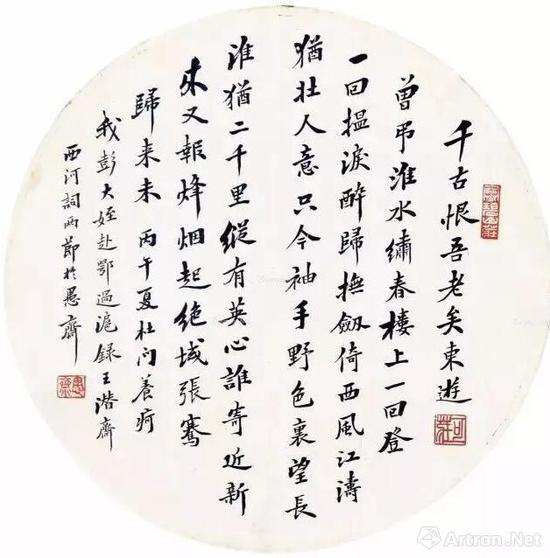 千古恨吾老矣東遊
曾弔淮水繡春樓上一回登
一回搵淚醉歸撫劔倚西風江濤
猶壯人意只今袖手野色裏望長
淮猶二千里縱有英心誰寄近新
來又報烽烟起絶域張騫
歸来未 丙午夏杜门養疴
我彭大姪赴鄂過滬録王潛齋
西河詞兩節於愚齋
愚齋
Artron.Net